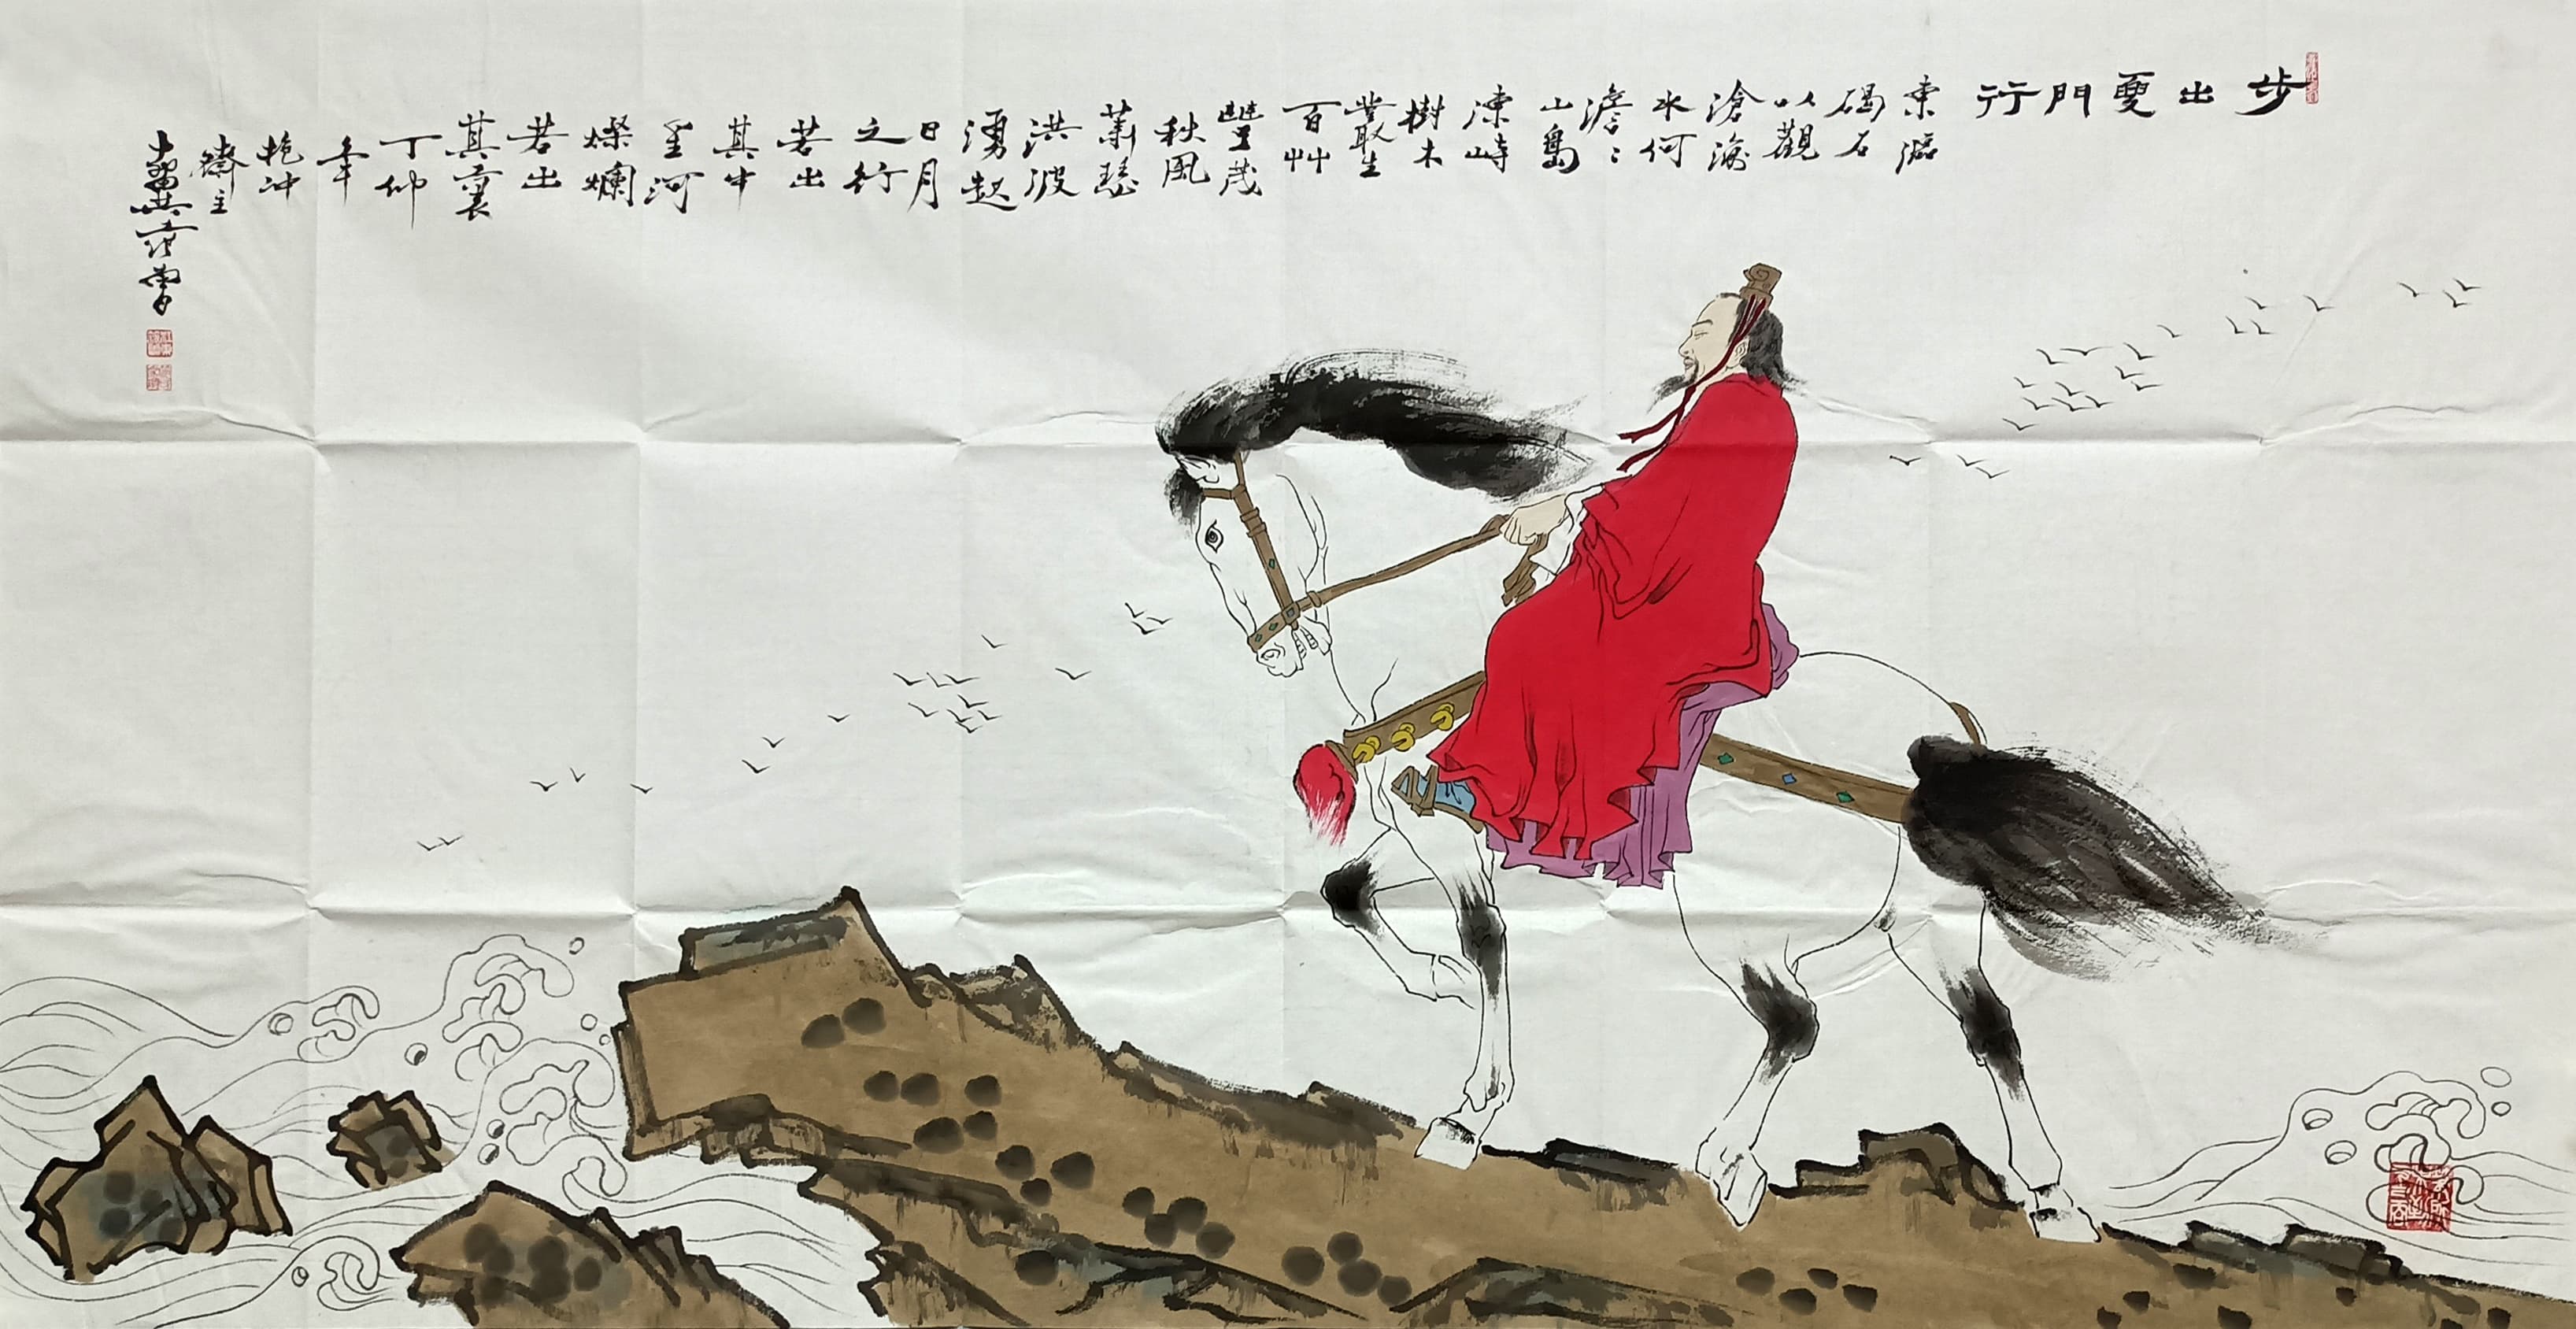 步出夏門行
東臨
碣石
以觀
滄海
水何
澹〻
山島
竦峙
樹木
叢生
百艸
豐茂
秋風
蕭瑟
洪波
湧起
日月
之行
若出
其中
星河
燦爛
若出
其裏
丁卯
年
抱沖
齋主
十翼范曾